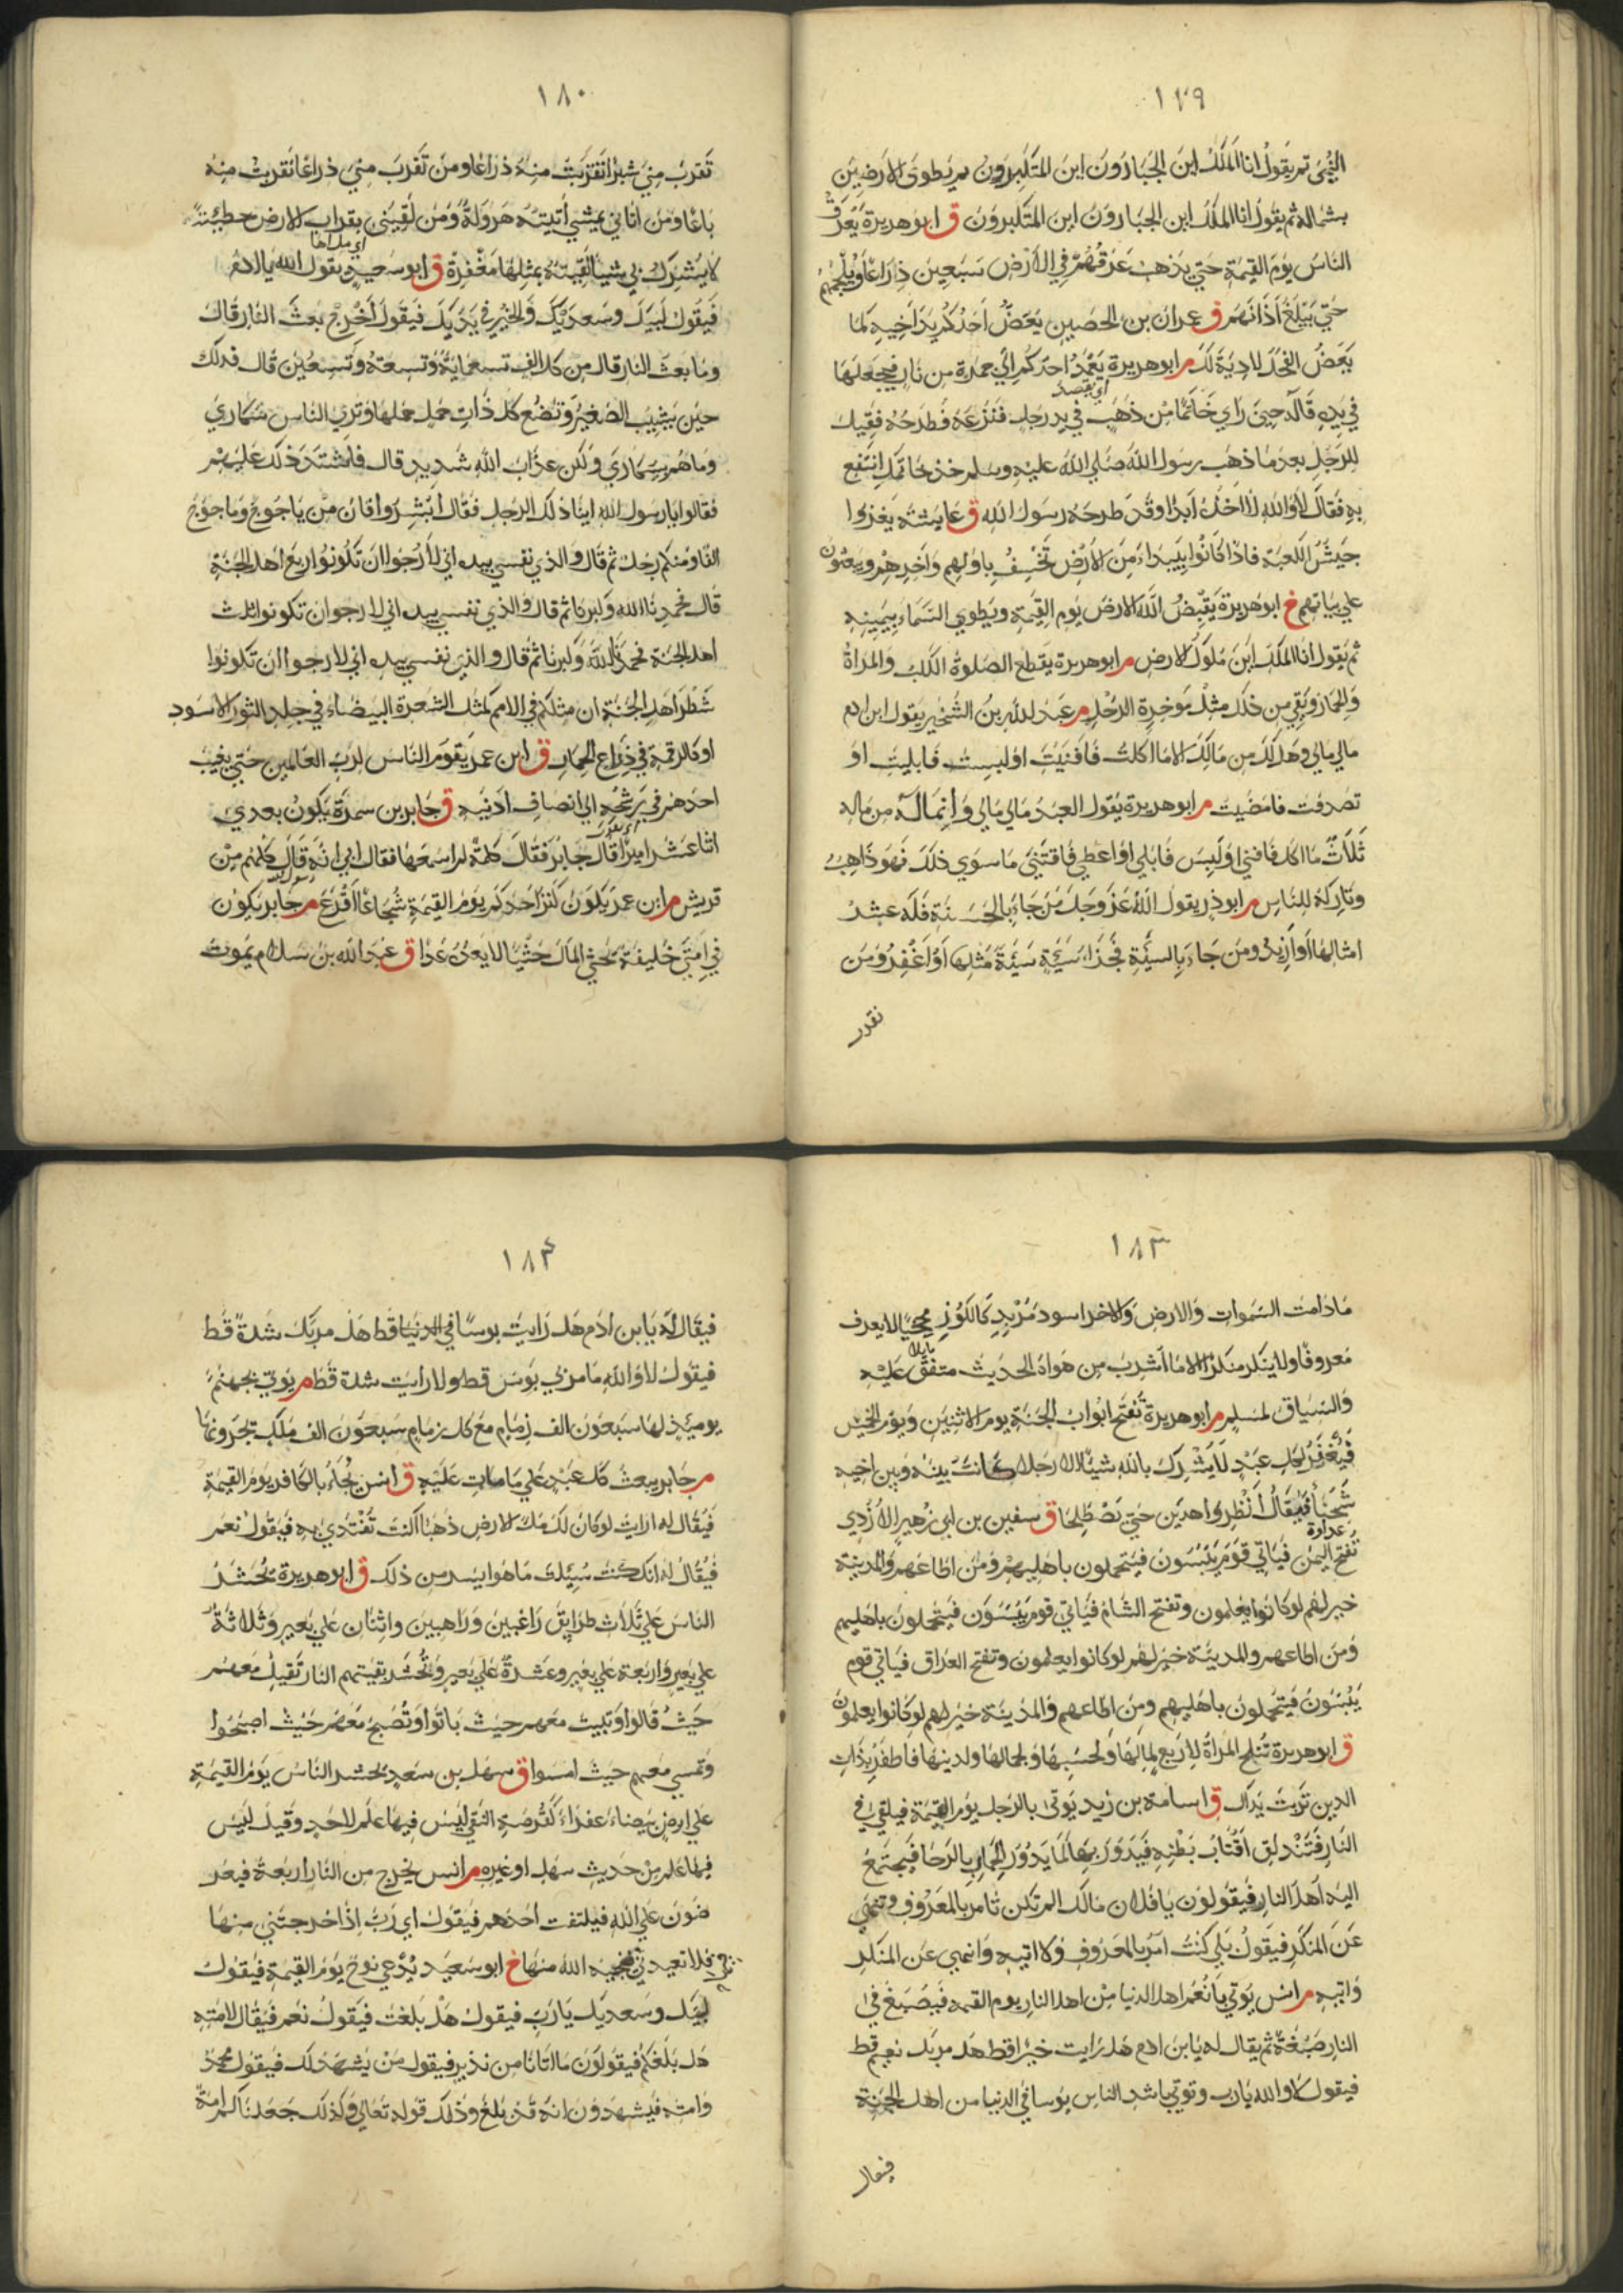 ١٧٩
اليمنى ثم يقول انا الملك اين الجبارون اين المتكبرون ثم يطوي الارضين
بشماله ثم يقول انا الملك اين الجبارون اين المتكبرون ق ابو هريرة يعرق
الناس يوم القيمة حتي يذهب عرقهم في الارض سبعين ذراعا ويلجمهم
حتي يبلغ اذانهم ق عمران بن الحصين يعض احدكم يد اخيه كما
يعض الفحل لا دية لك م ابو هريرة يعمد احدكم الي جمرة من نار فيجعلها
اي يقصد
في يده قاله حين راي خاتما من ذهب في يد رجل فنزعه فطرحه فقيل
للرجل بعد ما ذهب رسول الله صلي الله عليه وسلم خذ خاتمك انتفع
به فقال لا والله لا اخذه ابدا وقد طرحه رسول الله ق عايشة يغزوا
جيش الكعبة فاذا كانوا ببيداء من الارض تخسف باولهم واخرهم ويبعثون
علي نياتهم خ ابو هريرة يقبض الله الارض يوم القيمة ويطوي السماء بيمينه
ثم يقول انا الملك اين ملوك الارض م ابو هريرة يقطع الصلوة الكلب والمراة
والحمار ويقي من ذلك مثل موخرة الرحل م عبد الله بن الشخير يقول ابن ادم
مالي مالي وهل لك من مالك الا ما اكلت فافنيت او لبست فابليت او
تصدقت فامضيت م ابو هريرة يقول العبد مالي مالي وانما له من ماله
ثلاث ما اكل فافني او لبس فابلي او اعطي فاقتني ما سوي ذلك فهو ذاهب
وتاركه للناس م ابو ذر يقول الله عز وجل من جاء بالحسنة فله عشر
امثالها او ازيد ومن جاء بالسيئة فجزاء سيئة سيئة مثلها او اغفر ومن
تقرب
١٨٠
تقرب مني شبرا تقربت منه ذراعا ومن تقرب مني ذراعا تقربت منه
باعا ومن اتاني يمشي اتيته هرولة ومن لقيني بقراب الارض خطيئة
اي ملأها
لا يشرك بي شيئا لقيته بمثلها مغفرة ق ابو سعيد يقول الله يا ادم
فيقول لبيك وسعديك والخير في يديك فيقول اخرج بعث النار قال
وما بعث النار قال من كل الف تسعماية وتسعة وتسعين قال فذلك
حين يشيب الصغير وتضع كل ذات حمل حملها وتري الناس سكاري
وما هم بسكاري ولكن عذاب الله شديد قال فاشتد ذلك عليهم
فقالوا يا رسول الله اينا ذلك الرجل فقال ابشروا فان من ياجوج وماجوج
الفا ومنكم رجل ثم قال والذي نفسي بيده اني لارجوا ان تكونوا ربع اهل الجنة
قال فحمدنا الله وكبرنا ثم قال والذي نفسي بيده اني لارجو ان تكونوا ثلث
اهل الجنة فحمدنا الله وكبرنا ثم قال والذي نفسي بيده اني لارجوا ان تكونوا
شطر اهل الجنة ان مثلكم في الامم كمثل الشعرة البيضاء في جلد الثور الاسود
او كالرقمة في ذراع الحمار ق ابن عمر يقوم الناس لرب العالمين حتي يغيب
احدهم في رشحه الي انصاف اذنيه ق جابر بن سمرة يكون بعدي
اثنا عشر اميرا قال جابر فقال كلمة لم اسمعها فقال ابي انه قال كلهم من
قريش م ابن عمر يكون كنز احدكم يوم القيمة شجاعا اقرع م جابر يكون
في امتي خليفة يحثي المال حثيا لا يعده عدا ق عبد الله بن سلام يموت
١٨٣
ما دامت السموات والارض والاخر اسود مربد كالكوز مجخيا لا يعرف
معروفا ولا ينكر منكرا الا ما اشرب من هواه الحديث متفق عليه
والسياق لمسلم م ابو هريرة تفتح ابواب الجنة يوم الاثنين ويوم الخميس
فيغفر لكل عبد لا يشرك بالله شيئا الا رجلا كانت بينه وبين اخيه
شحنا فيقال انظروا هذين حتي يصطلحا ق سفين بن ابي زهير الازدي
عداوة
تفتح اليمن فياتي قوم يبسون فيتحملون باهليهم ومن اطاعهم والمدينة
خير لهم لو كانوا يعلمون وتفتح الشام فياتي قوم يبسون فيتحملون باهليهم
ومن اطاعهم والمدينة خير لهم لو كانوا يعلمون وتفتح العراق فياتي قوم
يبسون فيتحملون باهليهم ومن اطاعهم والمدينة خير لهم لو كانوا يعلمون
ق ابو هريرة تنكح المراة لاربع لمالها ولحسبها ولجمالها ولدينها فاظفر بذات
الدين تربت يداك ق اسامة بن زيد يوتي بالرجل يوم القيمة فيلقي في
النار فتندلق اقتاب بطنه فيدور بها كما يدور الحمار بالرحا فيجتمع
اليه اهل النار فيقولون يا فلان مالك الم تكن تامر بالمعروف وتنهي
عن المنكر فيقول بلي كنت امر بالمعروف ولا اتيه وانهي عن المنكر
واتيه م انس يوتي بانعم اهل الدنيا من اهل النار يوم القيمة فيصبغ في
النار صبغة ثم يقال له يا بن ادم هل رايت خيرا قط هل مر بك نعيم قط
فيقول لا والله يا رب ويوتي باشد الناس بوسا في الدنيا من اهل الجنة
فيقال
١٨٤
فيقال له يا بن ادم هل رايت بوسا في الدنيا قط هل مر بك شدة قط
فيقول لا والله ما مر بي بوس قط ولا رايت شدة قط م يوتي بجهنم
يوميذ لها سبعون الف زمام مع كل زمام سبعون الف ملك يجرونها
م جابر يبعث كل عبد علي ما مات عليه ق انس يجاء بالكافر يوم القيمة
فيقال له ارايت لو كان لك ملء الارض ذهبا اكنت تفتدي به فيقول نعم
فيقال له انك كنت سئلت ما هو ايسر من ذلك ق ابو هريرة يحشر
الناس علي ثلاث طرايق راغبين وراهبين واثنان علي بعير وثلاثة
علي بعير واربعة علي بعير وعشرة علي بعير وتحشر بقيتهم النار تقيل معهم
حيث قالوا وتبيت معهم حيث باتوا وتصبح معهم حيث اصبحوا
وتمسي معهم حيث امسوا ق سهل بن سعد يحشر الناس يوم القيمة
علي ارض بيضاء عفراء كقرصة النقي ليس فيها علم لاحد وقيل ليس
فيها علم من حديث سهل او غيره م انس يخرج من النار اربعة فيعر
ضون علي الله فيلتفت احدهم فيقول اي رب اذ اخرجتني منها
فلا تعيدني فينجيه الله منها خ ابو سعيد يدعي نوح يوم القيمة فيقول
لبيك وسعديك يا رب فيقول هل بلغت فيقول نعم فيقال لامته
هل بلغكم فيقولون ما اتانا من نذير فيقول من يشهد لك فيقول محمد
وامته فيشهدون انه قد بلغ وذلك قوله تعالي وكذلك جعلناكم امة